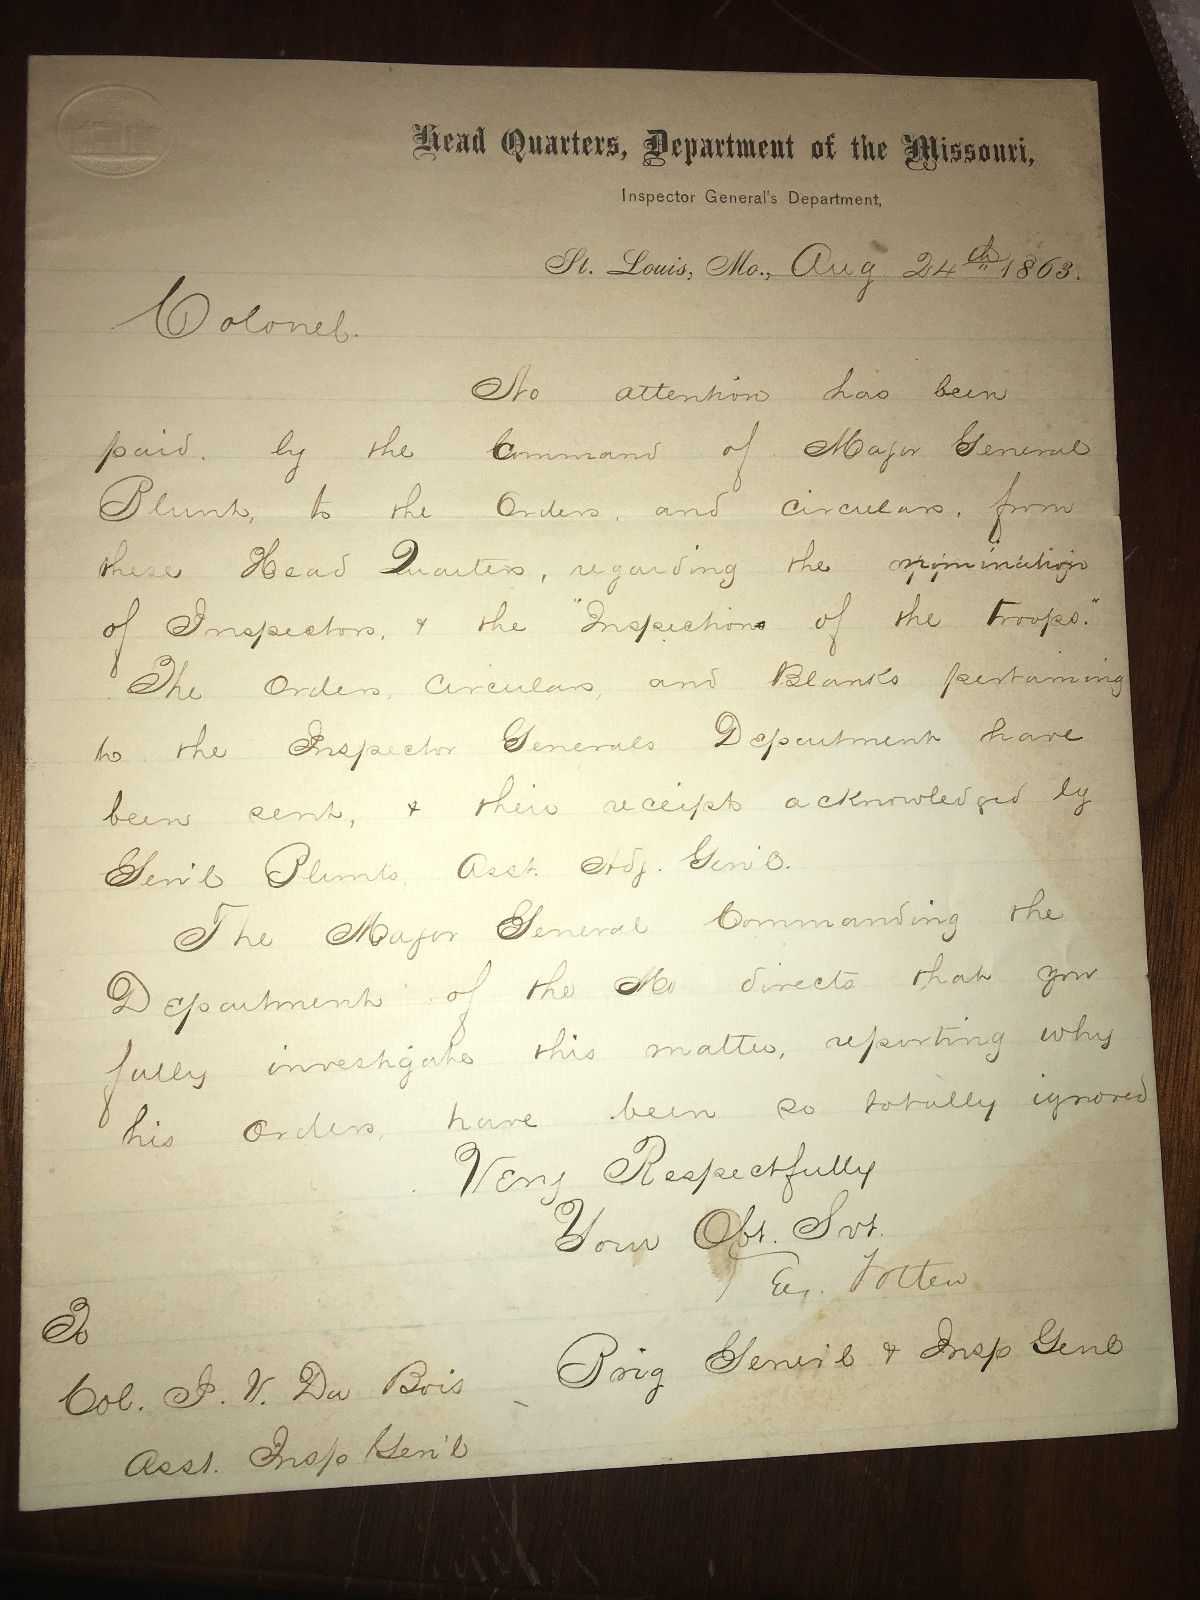 Head Quarters, Department of the Missouri,
Inspector General's Department,
St. Louis, Mo., Aug 24th 1863.
Colonel.
No attention has been
paid, by the Command of Major General
Blunt, to the Orders, and circulars, from
these Head Quarters, regarding the nomination
of Inspectors, & the "Inspection of the troops."
The Orders, Circulars, and Blanks pertaining
to the Inspector Generals Department have
been sent, & their receipt acknowledged by
Gen'l Blunts, Asst. Adj. Gen'l.
The Major General Commanding the
Department of the Mo directs that you
fully investigate this matter, reporting why
his Orders, have been so totally ignored
Very Respectfully
Your Obt. Svt.
Totten
Brig Gener'l & Insp Genl
To
Col. J. V. Du Bois
Asst. Insp Gen'l